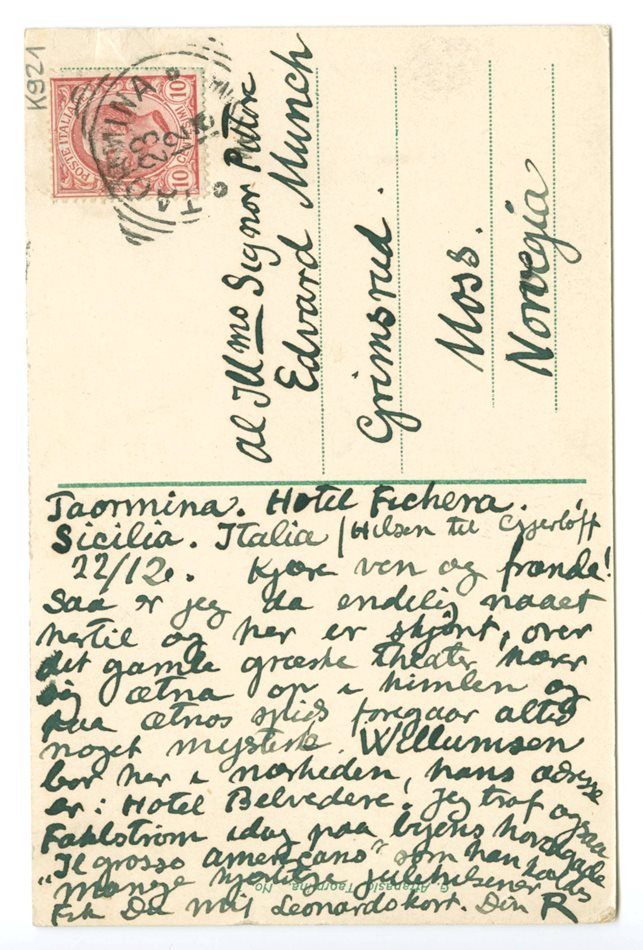 K921
POSTE ITALIANE
10 CENTESIMI 10
TAORMINA
23
12
al Ill<u>mo</u> Signor Pittore
Edvard Munch
Grimsrud.
Moss.
Norvegia
Taormina. Hotel Fichera.
Sicilia. Italia / Hilsen til Gjerløff
22/12. Kjære ven og frænde!
Saa er jeg da endelig naaet
hertil og her er skjønt, over
det gamle græske theater hæver
sig ætna op i himlen og
paa ætnas spids foregaar altid
noget mystisk. Willumsen
bor her i nærheden, hans adresse
er: Hotel Belvedere. Jeg traf ogsaa
Fahlstrøm idag paa byens hovedgade
"Il grosso americano" som han kaldes
mange hjertlige julehilsener
Fik Du mit Leonardskort. Din R
Atanasio, Taormina. No.